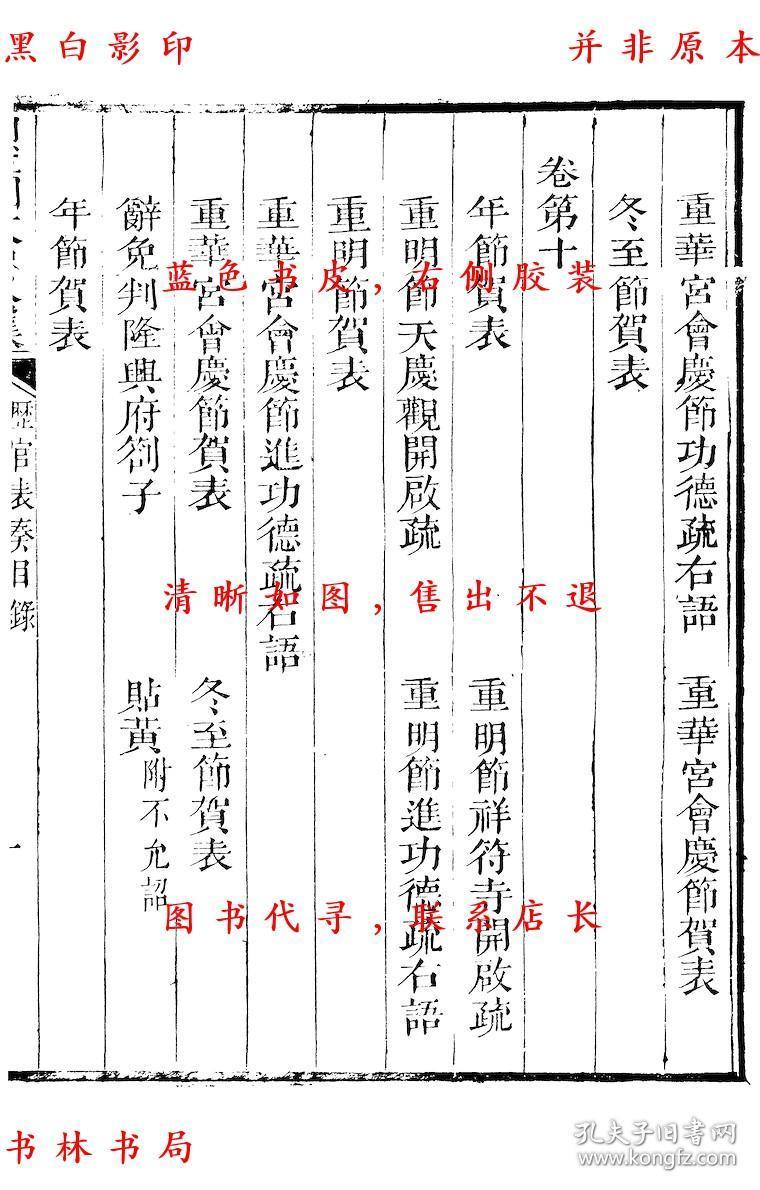 黑白影印
并非原本
重華宮會慶節功德疏右語 重華宮會慶節賀表
冬至節賀表
卷第十
年節賀表 重明節祥符寺開啟疏
重明節天慶觀開啟疏 重明節進功德疏右語
重明節賀表
重華宮會慶節進功德疏右語
重華宮會慶節賀表 冬至節賀表
辭免判隆興府劄子 貼黃附不允詔
年節賀表
歷官表奏目錄
一
蓝色书皮,右侧胶装
清晰如图,售出不退
图书代寻,联系店长
书林书局
孔夫子旧书网
www.kongfz.com